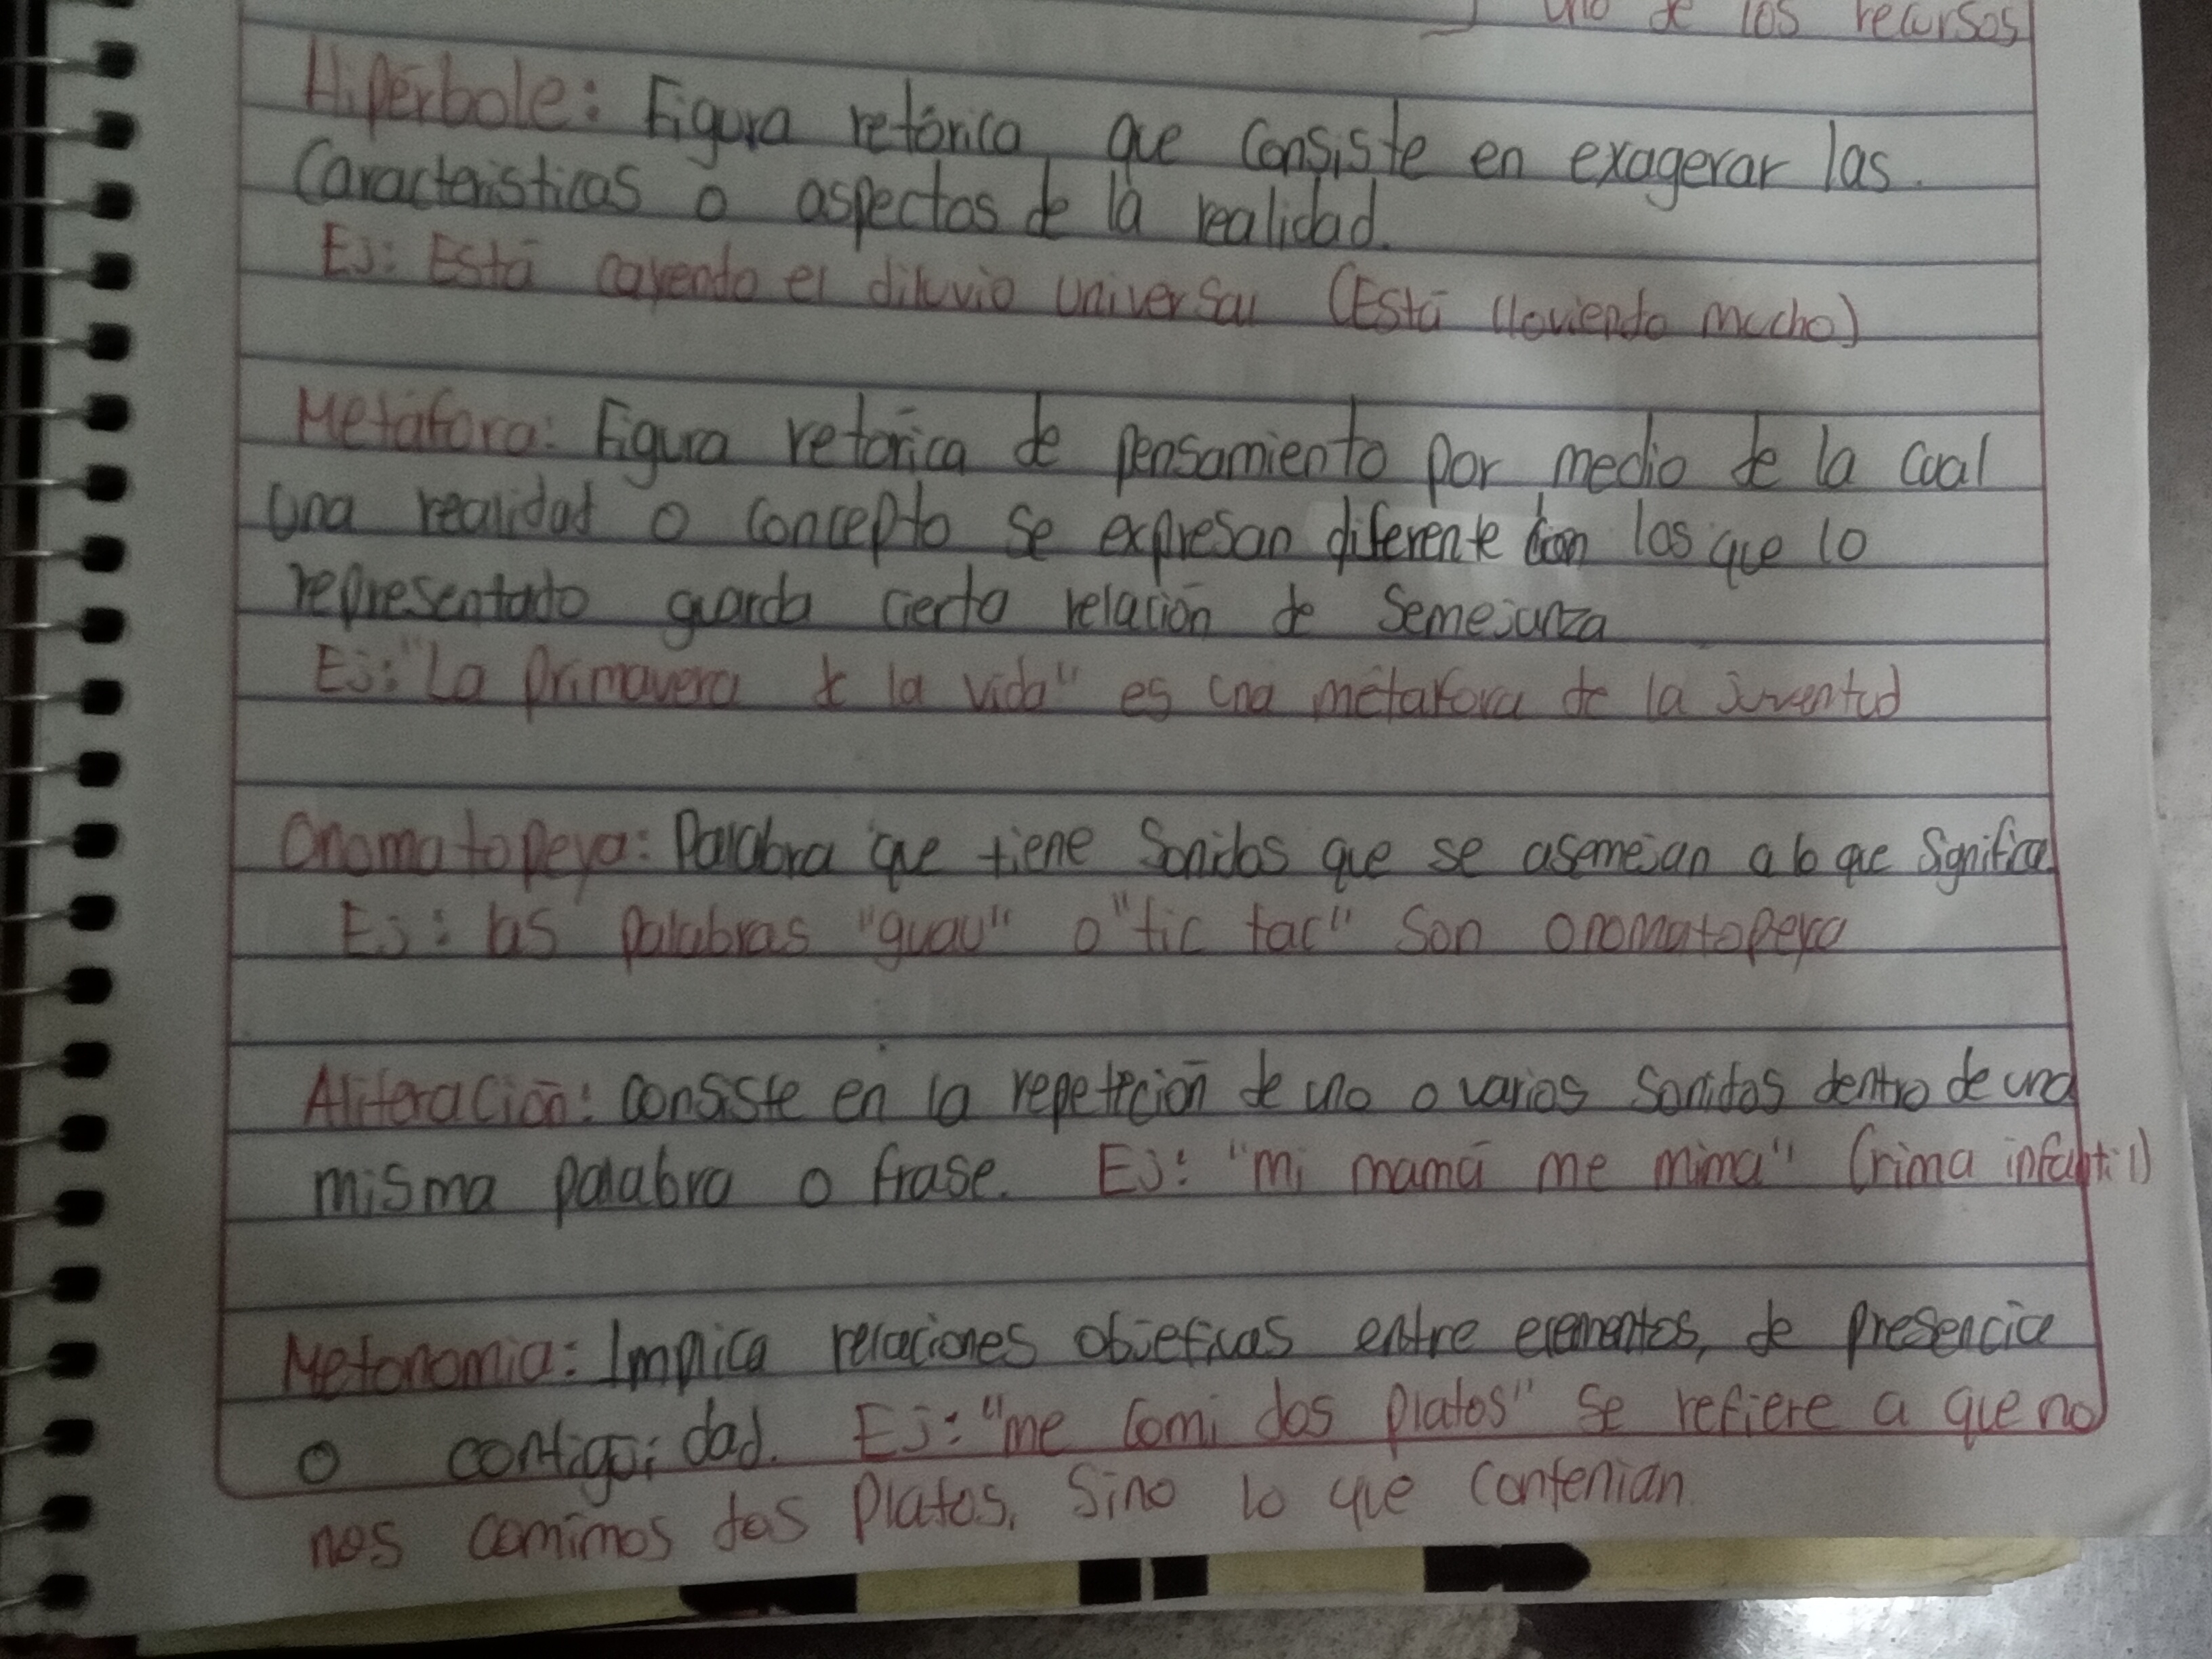 uno de los recursos
Hipérbole: Figura retórica que consiste en exagerar las
Caracteristicas o aspectos de la realidad.
Ej: Está cayendo el diluvio universal (Está lloviendo mucho)
Metáfora: Figura retórica de pensamiento por medio de la cual
una realidad o concepto se expresan diferente con los que lo
representado guarda cierta relación de semejanza
Ej: "La primavera de la vida" es una métafora de la juventud
Onomatopeya: Palabra que tiene sonidos que se asemejan a lo que significa
Ej: las palabras "guau" o "tic tac" son onomatopeya
Aliteración: consiste en la repetición de uno o varios sonidos dentro de una
misma palabra o frase. Ej: "mi mamá me mima" (rima infantil)
Metonomia: Implica relaciones objetivas entre elementos, de presencia
o contigüidad. Ej: "me comi dos platos" se refiere a que no
nos comimos dos platos, sino lo que contenian